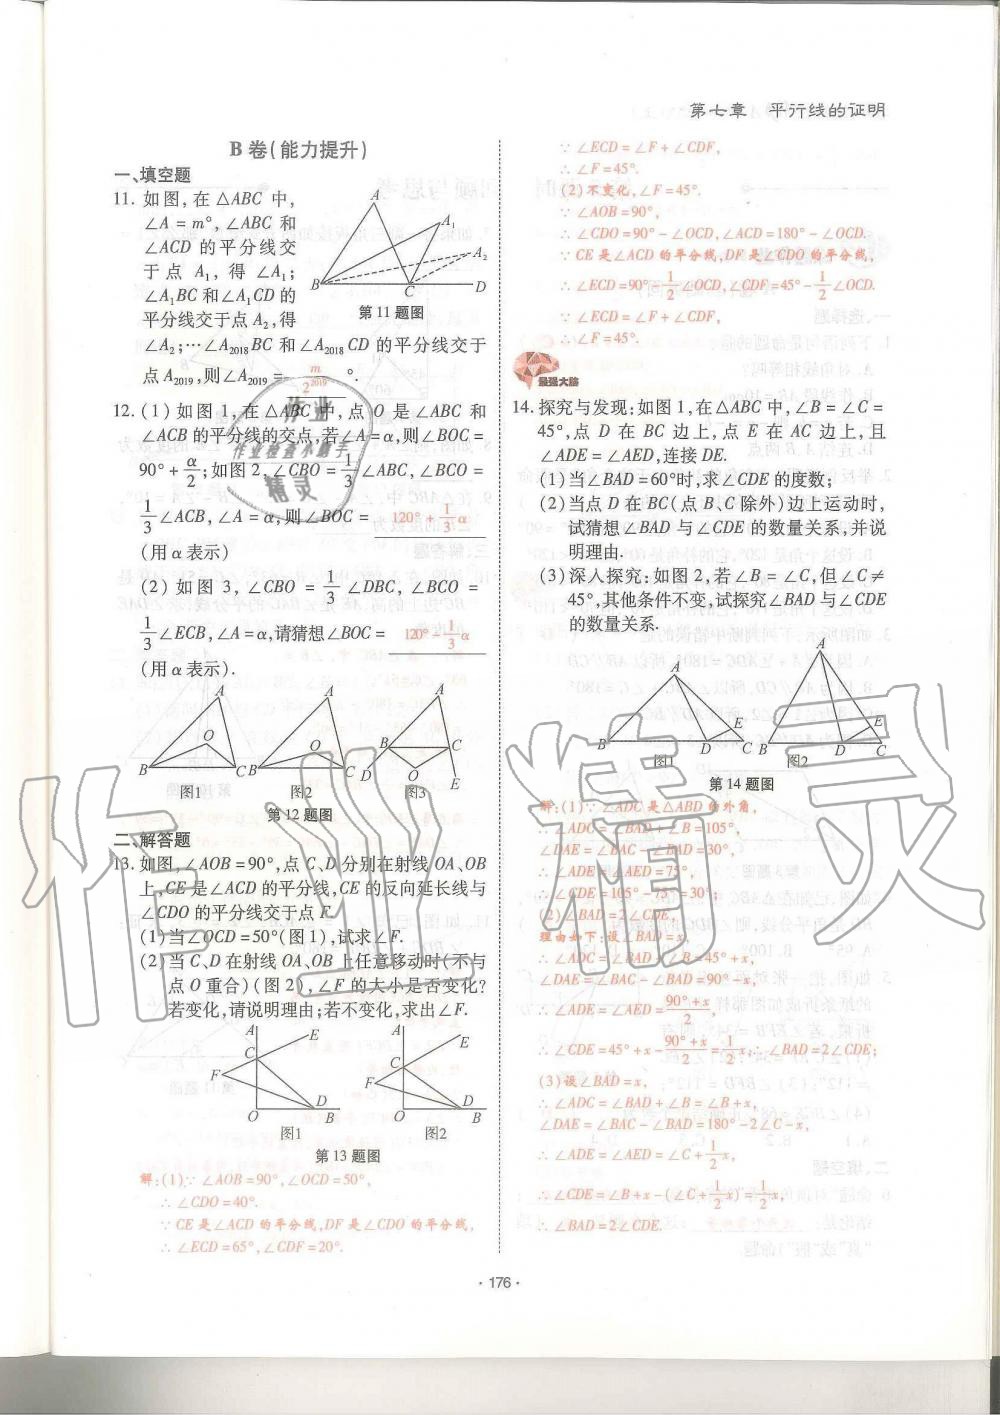 第七章　平行线的证明
B卷(能力提升)
一、填空题
11. 如图,在△ABC中,
∠A=m°,∠ABC和
∠ACD的平分线交
于点A₁,得∠A₁;
∠A₁BC和∠A₁CD的
平分线交于点A₂,得
∠A₂;…∠A₂₀₁₈BC和∠A₂₀₁₈CD的平分线交于
点A₂₀₁₉,则∠A₂₀₁₉= m/2²⁰¹⁹ °.
A
A₁
A₂
B
C
D
第11题图
12. (1)如图1,在△ABC中,点O是∠ABC和
∠ACB的平分线的交点,若∠A=α,则∠BOC=
90°+α/2;如图2,∠CBO=1/3∠ABC,∠BCO=
1/3∠ACB,∠A=α,则∠BOC= 120°+1/3α
(用α表示)
(2)如图3,∠CBO=1/3∠DBC,∠BCO=
1/3∠ECB,∠A=α,请猜想∠BOC= 120°-1/3α
(用α表示).
A
O
B
C
图1
A
O
B
C
图2
A
B
C
D
O
E
图3
第12题图
二、解答题
13. 如图,∠AOB=90°,点C、D分别在射线OA、OB
上,CE是∠ACD的平分线,CE的反向延长线与
∠CDO的平分线交于点F.
(1)当∠OCD=50°(图1),试求∠F.
(2)当C、D在射线OA、OB上任意移动时(不与
点O重合)(图2),∠F的大小是否变化?
若变化,请说明理由;若不变化,求出∠F.
A
E
C
F
D
O
B
图1
A
E
C
F
D
O
B
图2
第13题图
解:(1)∵∠AOB=90°,∠OCD=50°,
∴∠CDO=40°.
∵CE是∠ACD的平分线,DF是∠CDO的平分线,
∴∠ECD=65°,∠CDF=20°.
∵∠ECD=∠F+∠CDF,
∴∠F=45°.
(2)不变化,∠F=45°.
∵∠AOB=90°,
∴∠CDO=90°-∠OCD,∠ACD=180°-∠OCD.
∵CE是∠ACD的平分线,DF是∠CDO的平分线,
∴∠ECD=90°-1/2∠OCD,∠CDF=45°-1/2∠OCD.
∵∠ECD=∠F+∠CDF,
∴∠F=45°.
最强大脑
14. 探究与发现:如图1,在△ABC中,∠B=∠C=
45°,点D在BC边上,点E在AC边上,且
∠ADE=∠AED,连接DE.
(1)当∠BAD=60°时,求∠CDE的度数;
(2)当点D在BC(点B、C除外)边上运动时,
试猜想∠BAD与∠CDE的数量关系,并说
明理由.
(3)深入探究:如图2,若∠B=∠C,但∠C≠
45°,其他条件不变,试探究∠BAD与∠CDE
的数量关系.
A
E
B
D
C
图1
A
E
B
D
C
图2
第14题图
解:(1)∵∠ADC是△ABD的外角,
∴∠ADC=∠BAD+∠B=105°,
∠DAE=∠BAC-∠BAD=30°,
∴∠ADE=∠AED=75°,
∴∠CDE=105°-75°=30°;
(2)∠BAD=2∠CDE,
理由如下:设∠BAD=x,
∴∠ADC=∠BAD+∠B=45°+x,
∠DAE=∠BAC-∠BAD=90°-x,
∴∠ADE=∠AED=(90°+x)/2,
∴∠CDE=45°+x-(90°+x)/2=1/2x,∴∠BAD=2∠CDE;
(3)设∠BAD=x,
∴∠ADC=∠BAD+∠B=∠B+x,
∠DAE=∠BAC-∠BAD=180°-2∠C-x,
∴∠ADE=∠AED=∠C+1/2x,
∴∠CDE=∠B+x-(∠C+1/2x)=1/2x,
∴∠BAD=2∠CDE.
作业
作业检查小助手
精灵
作业精灵
·176·